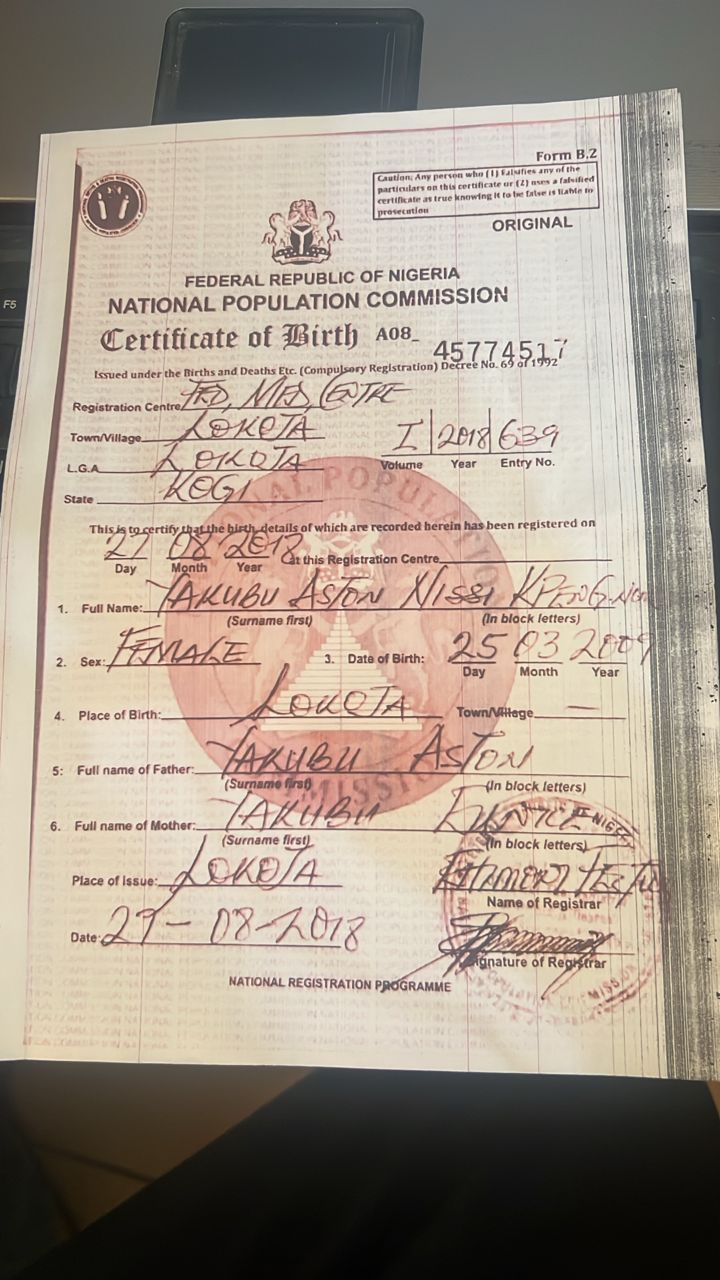 F5
Form B.2
Caution: Any person who (1) Falsifies any of the
particulars on this certificate or (2) uses a falsified
certificate as true knowing it to be false is liable to
prosecution
ORIGINAL
FEDERAL REPUBLIC OF NIGERIA
NATIONAL POPULATION COMMISSION
Certificate of Birth A08_ 45774517
Issued under the Births and Deaths Etc. (Compulsory Registration) Decree No. 69 of 1992
Registration Centre FED, MED, CENTRE
Town/Village LOKOJA
L.G.A LOKOJA
I 2018 639
Volume Year Entry No.
State KOGI
This is to certify that the birth, details of which are recorded herein has been registered on
27 08 2018 at this Registration Centre
Day Month Year
1. Full Name: YAKUBU ASTON NISSI
(Surname first) (In block letters)
2. Sex: FEMALE 3. Date of Birth: 25 03 2009
Day Month Year
4. Place of Birth: LOKOJA Town/Village —
5: Full name of Father: YAKUBU ASTON
(Surname first) (In block letters)
6. Full name of Mother: YAKUBU EUNICE
(Surname first) (In block letters)
Place of Issue: LOKOJA
Name of Registrar
Date: 27-08-2018
Signature of Registrar
NATIONAL REGISTRATION PROGRAMME